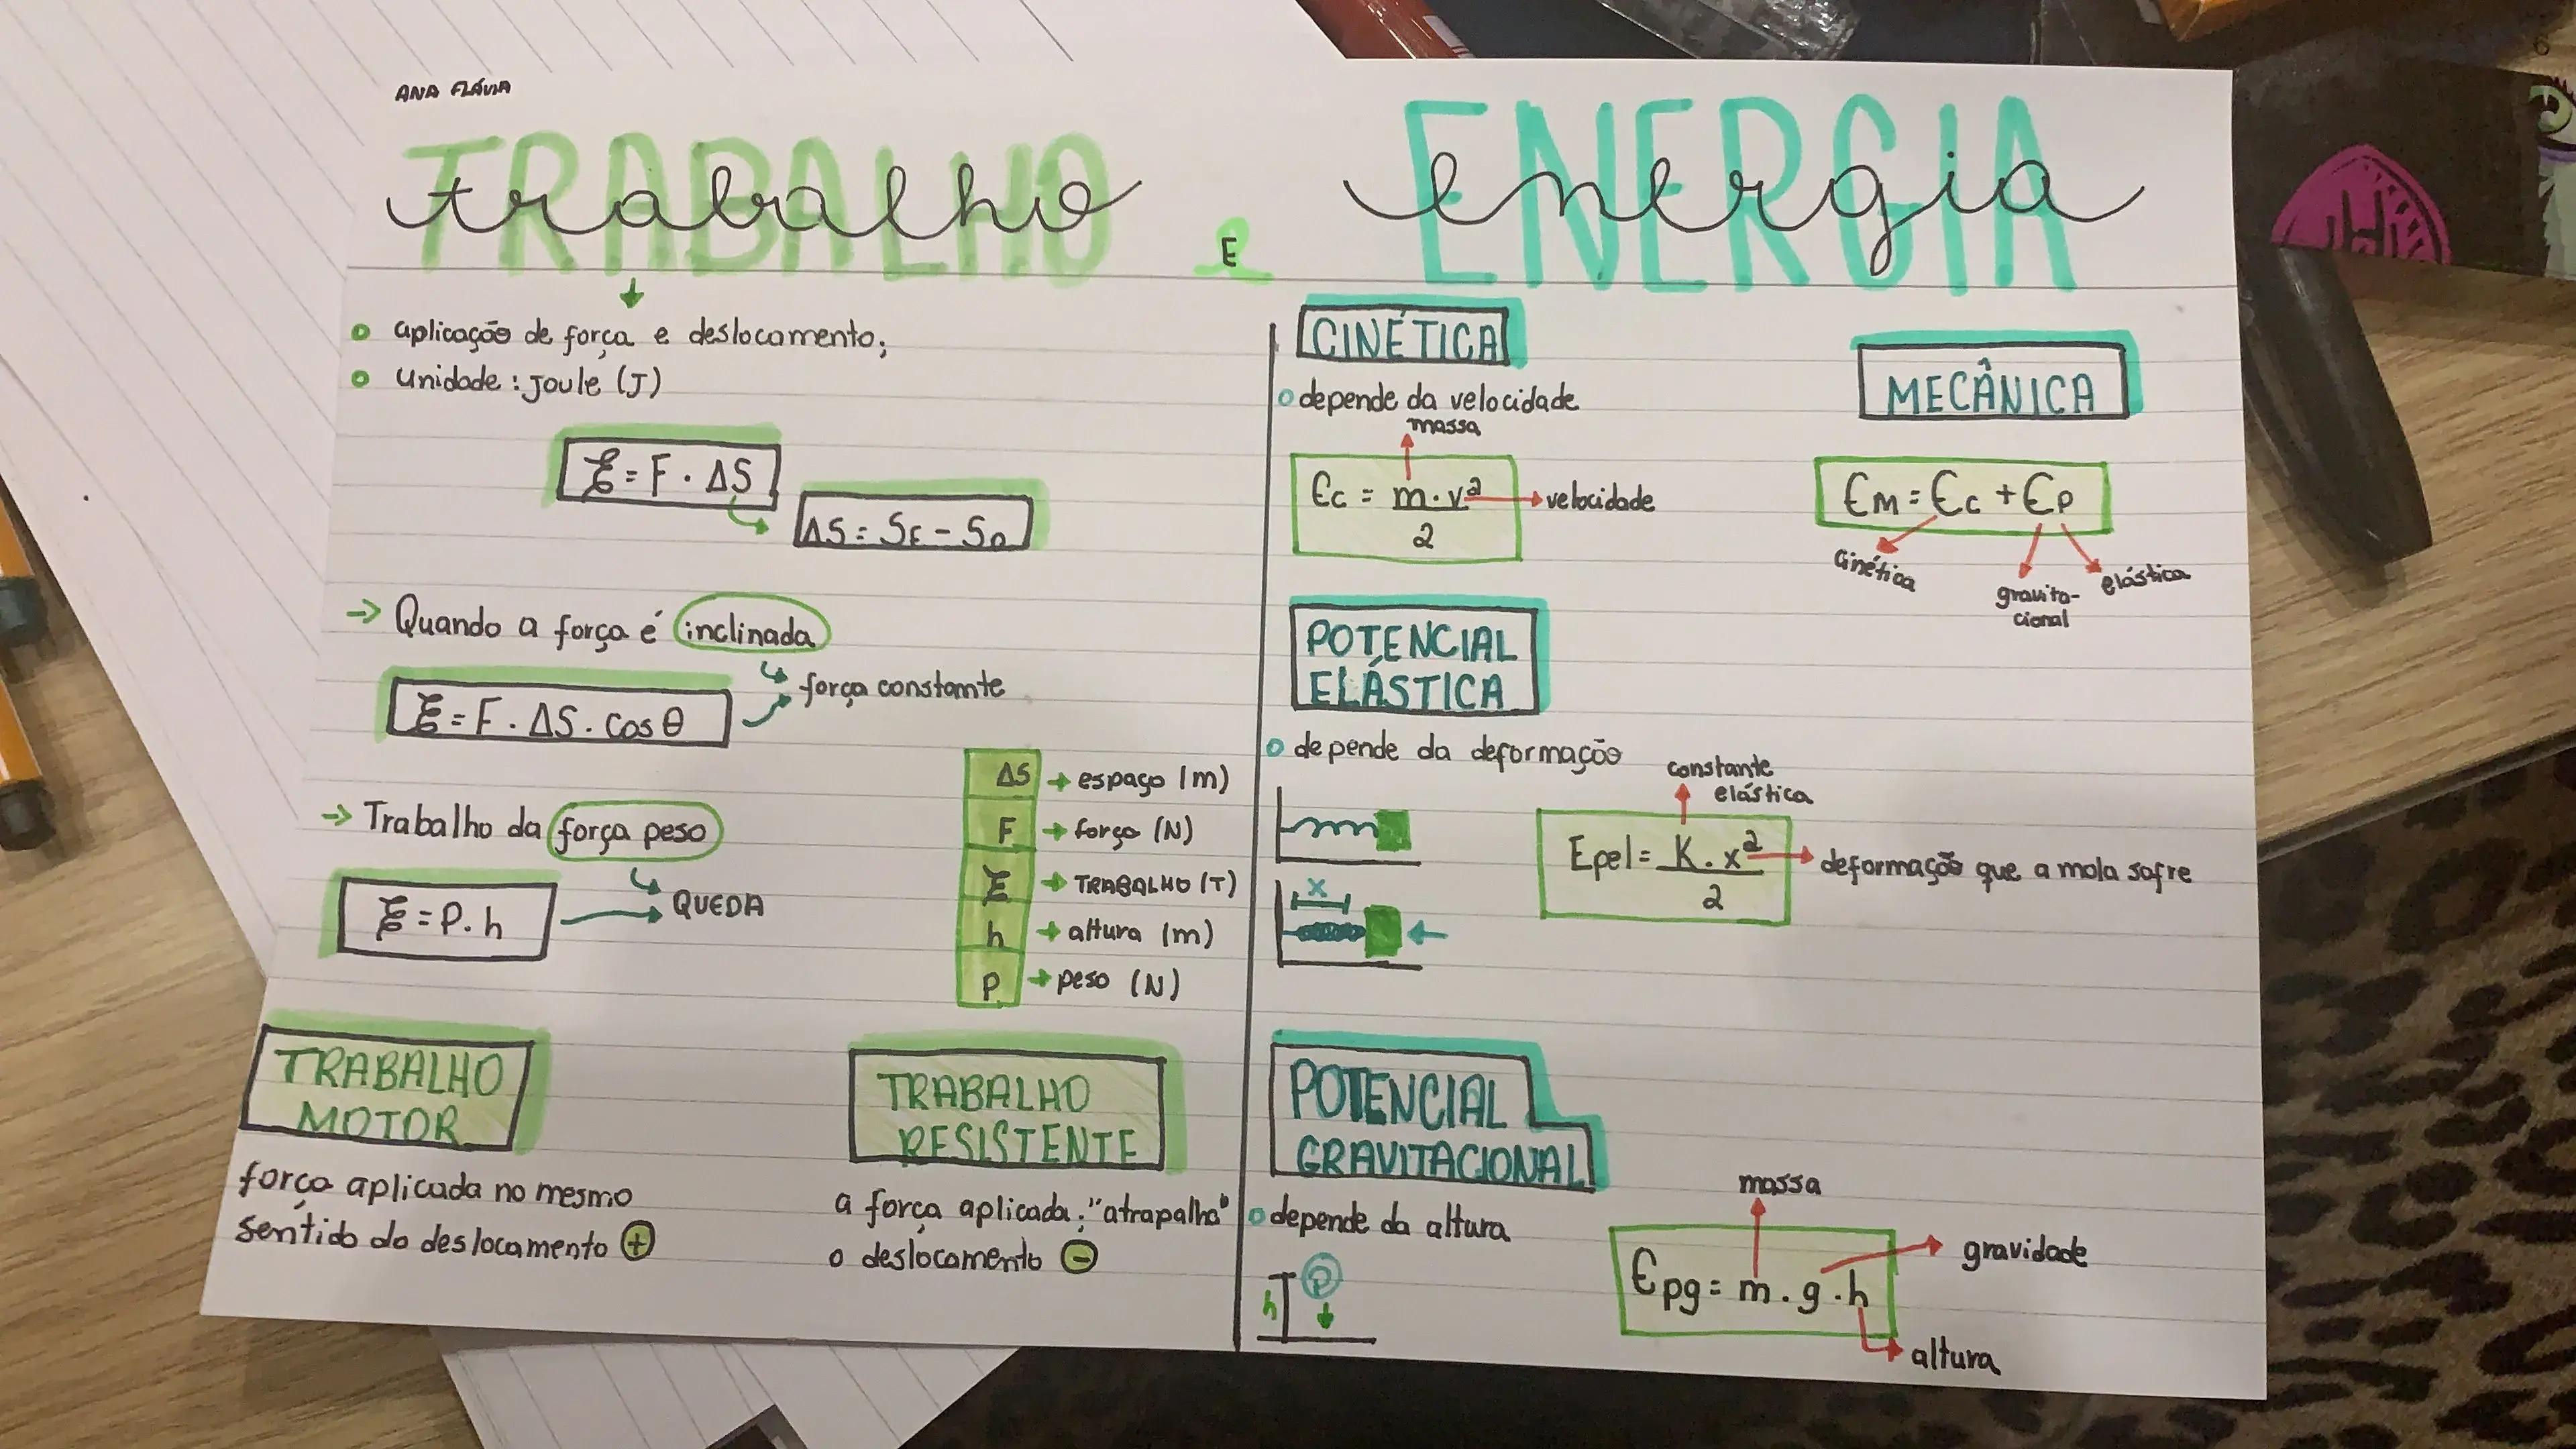 ANA FLÁVIA
TRABALHO
trabalho
E
ENERGIA
energia
aplicação de força e deslocamento;
unidade: Joule (J)
ξ = F · ΔS
ΔS = SF - S0
→ Quando a força é inclinada
força constante
ξ = F · ΔS · cos θ
→ Trabalho da força peso
QUEDA
ξ = P. h
ΔS → espaço (m)
F → força (N)
ξ → TRABALHO (T)
h → altura (m)
P → peso (N)
TRABALHO
MOTOR
força aplicada no mesmo
sentido do deslocamento +
TRABALHO
RESISTENTE
a força aplicada; "atrapalha"
o deslocamento -
CINÉTICA
depende da velocidade
massa
Ec = m · v²
2
velocidade
MECÂNICA
EM = Ec + EP
cinética
gravita-
cional
elástica
POTENCIAL
ELÁSTICA
depende da deformação
constante
elástica
Epel = K . x²
2
deformação que a mola sofre
x
POTENCIAL
GRAVITACIONAL
depende da altura
h
P
massa
Epg = m . g . h
gravidade
altura